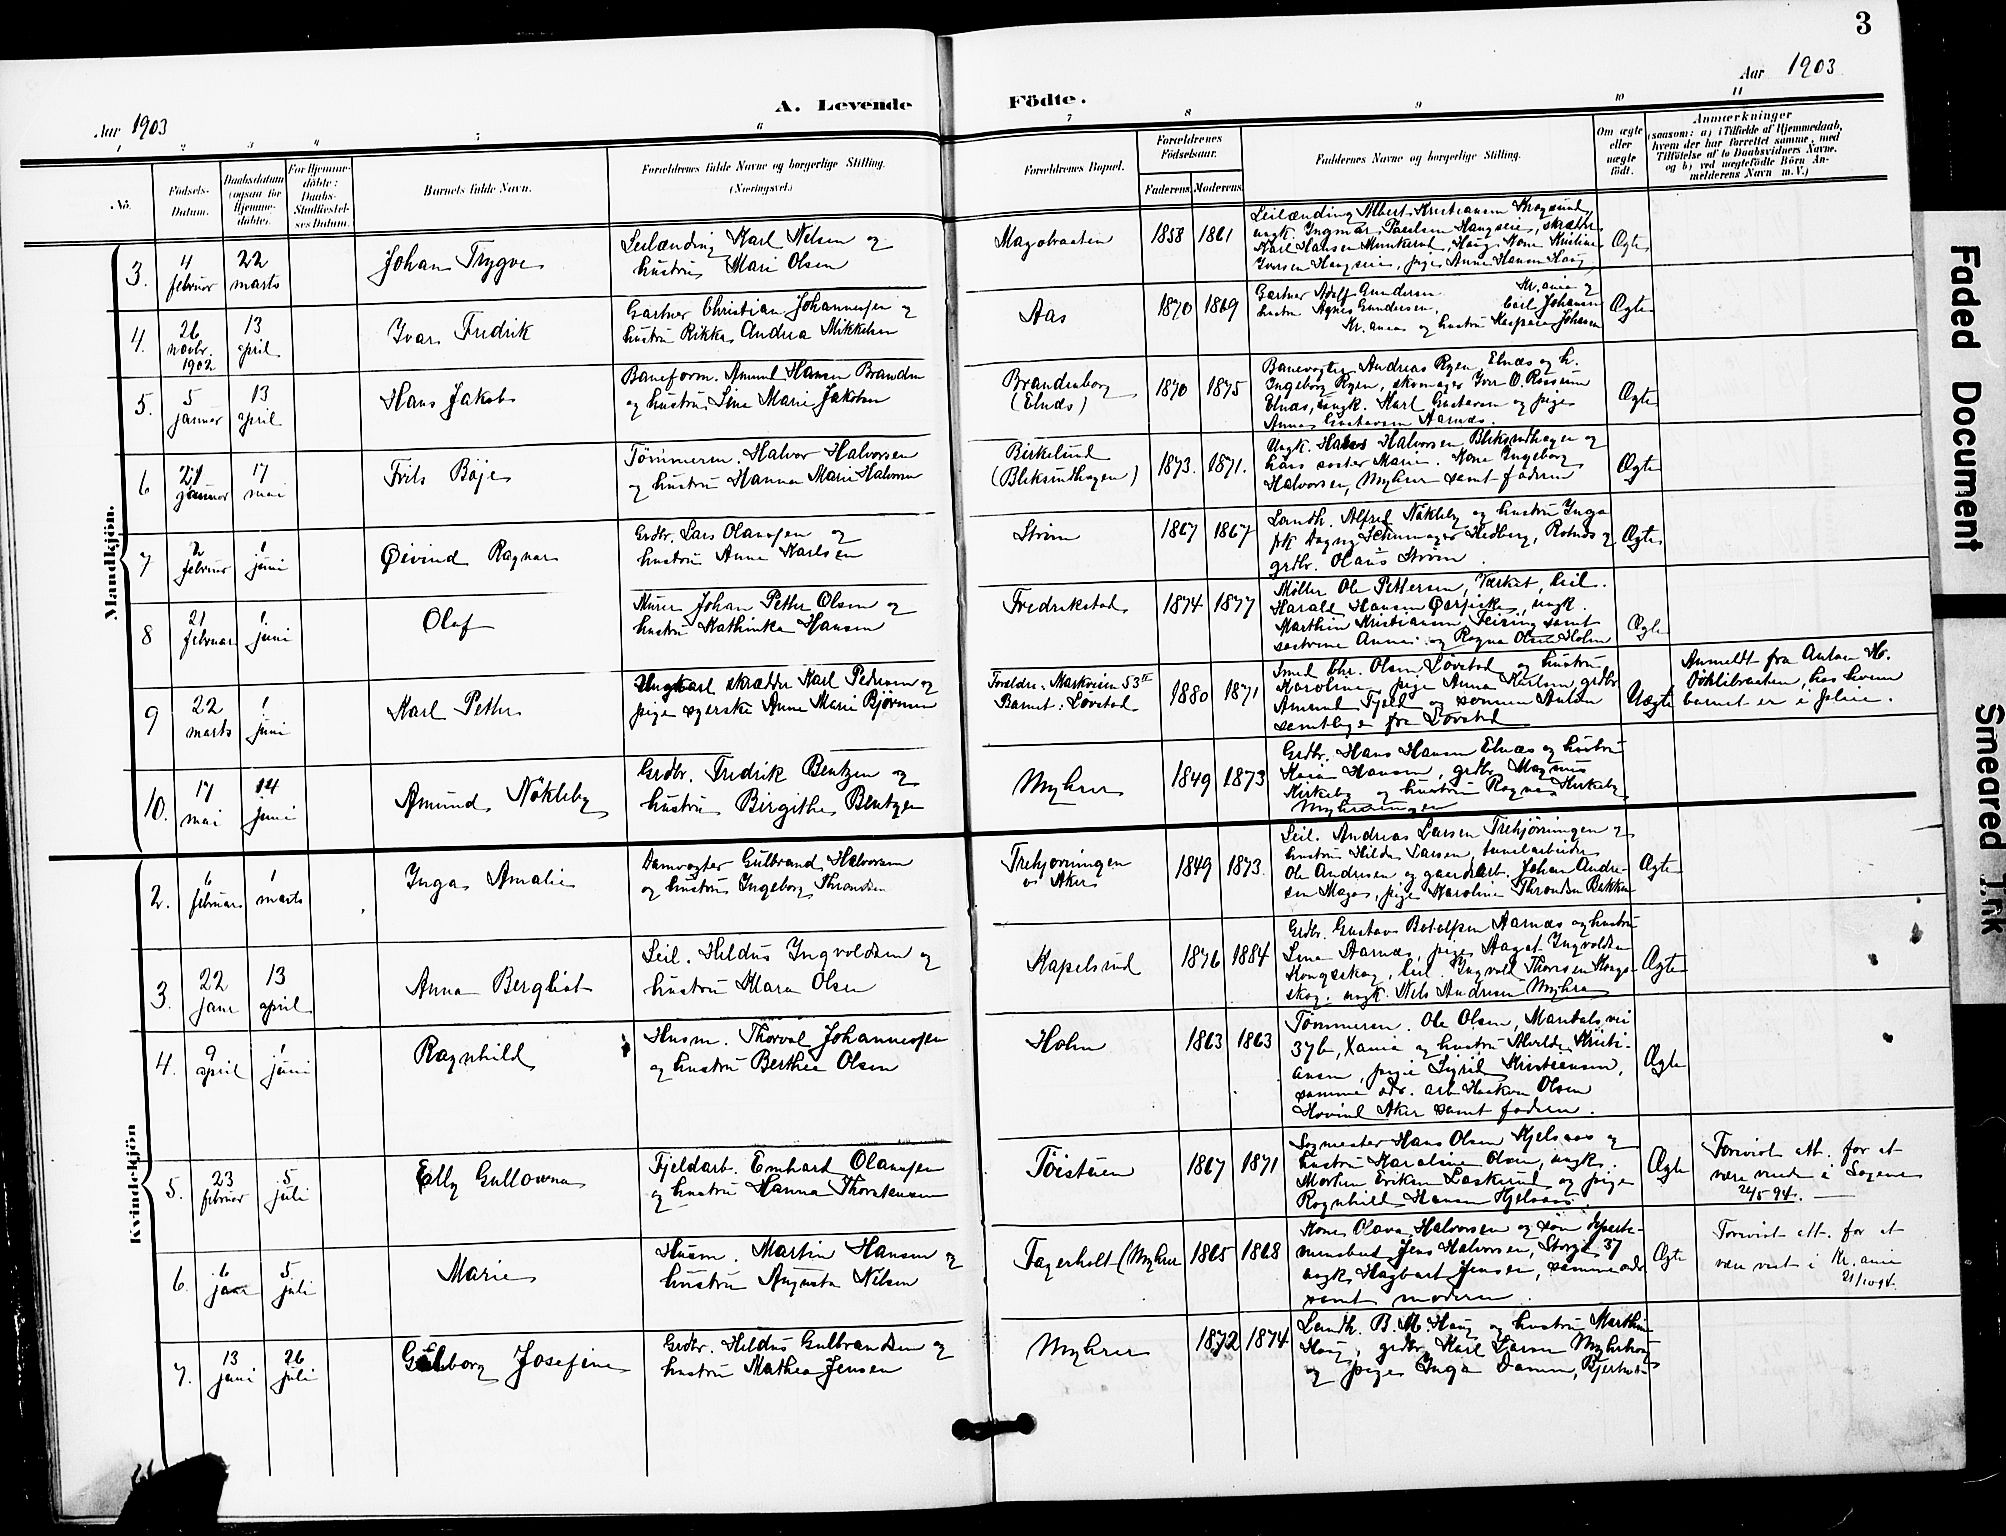 3
Aar 1903
Aar 1903
A. Levende
Födte.
1 2 3 4 5 6
7 8 9 10 11
No.
Födsels-Datum.
Daabsdatum (ogsaa for Hjemmedøbte).
For Hjemmedöbte: Daabs-Stadfæstelses Datum.
Barnets fulde Navn.
Forældrenes fulde Navne og borgerlige Stilling.
(Næringsvei.)
Forældrenes Bopæl.
Forældrenes Födselsaar.
Faderens. Moderens.
Faddernes Navne og borgerlige Stilling.
Om ægte eller uægte født.
Anmærkninger
(saasom: a) i Tilfælde af Hjemmedaab,
hvem der har forrettet samme, med
Tilföielse af to Daabsvidners Navne,
og b) ved uægtefödte Börn An-
melderens Navn m. V.)
Mandkjön.
3. 4 februar 22 marts
Johan Trygve
Leilænding Karl Nilsen og
hustru Mari Olsen
Magobraaten
1858 1861
Leilænding Albert Kristiansen
ungk. Ingmar Paulsen Haugseie, skrædder
Karl Hansen Munkerud, Haug, Kone Kristine
Iversen Haugseie, pige Anne Hansen Haug
Ægte
4. 26 novbr. 1902 13 april
Ivar Fredrik
Gartner Christian Johannesen og
hustru Rikka Andrea Mikkelsen
Aas
1870 1869
Gartner Adolf Gundersen Kr.ania og
hustru Agnes Gundersen, Carl Johansen
Kr.ania og hustru Kaspara Johansen
Ægte
5. 5 januar 13 april
Hans Jakob
Baneform. Amund Hansen Branden
og hustru Lina Marie Jakobsen
Brandenborg
(Elnæs)
1870 1875
Banevogter Andreas Ryen, Elnæs og h.
Ingeborg Ryen, skomager Iver O.
Elnæs, ungk. Karl Gustavsen og pige
Anna Gustavsen Aarnæs.
Ægte
6 21 januar 17 mai
Frits Böje
Tømmerm. Halvor Halvorsen
og hustru Hanna Marie Halvorsen
Birkelund
(Bliksrudhagen)
1873. 1871.
Ungk. Halvor Halvorsen Bliksrudhagen og
hans søster Marie. Kone Ingeborg
Halvorsen, Myhrer samt faderen
Ægte
7 2 februar 1 juni
Øivind Ragnar
Grdbr. Lars Olaussen og
hustru Anna Karlsen
Strøm
1867 1867
Landh. Alfred Nökleby og hustru Inga
frk Dagny Schumager Hedberg, Rotnæs og
grdbr. Olaus Strøm.
Ægte
8 21 februar 1 juni
Olaf
Murer Johan Petter Olsen og
hustru Kathinka Hansen
Fredrikstad
1874 1877
Møller Ole Pettersen, Værket, Leil.
Harald Hansen Ørfiske, ungk.
Marthin Kristiansen Teising samt
søstrene Anna og Ragna Olsen Holm
Ægte
9 22 marts 1 juni
Karl Petter
Ungkarl skrædder Karl Pedersen og
pige syerske Anne Marie Björnsen
Foreldre: Markveien 53 II
Barnet: Løvstad
1880 1871
Smed Chr. Olsen Løvstad og hustru
Karoline, pige Anna Karlsen, grdbr
Amund Fjeld og sønnen Anton
samtlige fra Løvstad
Uægte
Anmeldt fra Anton M.
hos hvem
barnet er i pleie.
10. 17 mai 14 juni
Amund Nökleby
Grdbr. Fredrik Bentzen og
hustru Birgithe Bentzen
Myhrer
1849 1873
Grdbr. Hans Hansen Elnæs og hustru
Karen Hansen, grdbr. Magnus
Kirkeby og hustru Ragna Kirkeby
Kvindekjön
2. 6 februar 1 marts
Inga Amalie
Damvogter Gulbrand Halvorsen
og hustru Ingeborg Throndsen
Trehjørningen
v Aker
1849 1873.
Leil. Andreas Larsen Trehjørningen og
hustru Hilda Larsen, tunelarbeider
Ole Andersen og gaardsarb. Johan Andre-
sen Mago, pige Karoline Throndsen Bakken
Ægte
3. 22 janr 13 april
Anna Bergliot
Leil. Hildus Ingvoldsen og
hustru Maren Olsen
Kapelsrud
1876 1884
Grdbr. Gustav Botolfsen Aarnæs og hustru
Lina Aarnæs, pige Aagot Ingvoldsen
Kongsskog, leil. Ingvald Thoresen Kongs-
skog, ungk. Nels Andresen Myhre
Ægte
4. 9 april 1 juni
Ragnhild
Husm. Thorval Johannesen
og hustru Berthea Olsen
Holm
1863 1863
Tømmerm. Ole Olsen, Maridalsvei
37b, Xania og hustru Alvilde Kristi-
ansen, pige Sigrid Kristiansen,
samme adr. arb. Haakon Olsen
Hovind Aker samt faderen.
Ægte
5. 23 februar 5 juli
Elly Gullowna
Fjeldarb. Emhart Olaussen
og hustru Hanna Thorstensen
Töistuen
1867 1871
Sagmester Hans Olsen Kjelsaas og
hustru Karoline Olsen, ungk.
Morten Eriksen Laskerud og pige
Ragnhild Hansen Kjelsaas.
Ægte
Forevist att. for at
være viede i Sognet
26/5 94.
6. 6 janr 5 juli
Marie
Husm. Martin Hansen og
hustru Augusta Nilsen
Fagerholt (Myhrer
1865 1868
Kone Olava Halvorsen og søn
Jens Halvorsen, Storgt 37
ungk Hagbart Jensen, samme adr
samt moderen.
Ægte
Forevist att. for at
være viet i Kr.ania
21/10 94.
7. 13 juni 26 juli
Gulborg Josefine
Grdbr. Hildus Gulbrandsen og
hustru Mathea Jensen
Myhrer
1872 1874
Landh. B. M. Haug og hustru Marthin
Haug, grdbr. Karl Larsen Myhrhaug
og pige Inga Damm, Bjerke
Faded Document
Smeared Ink